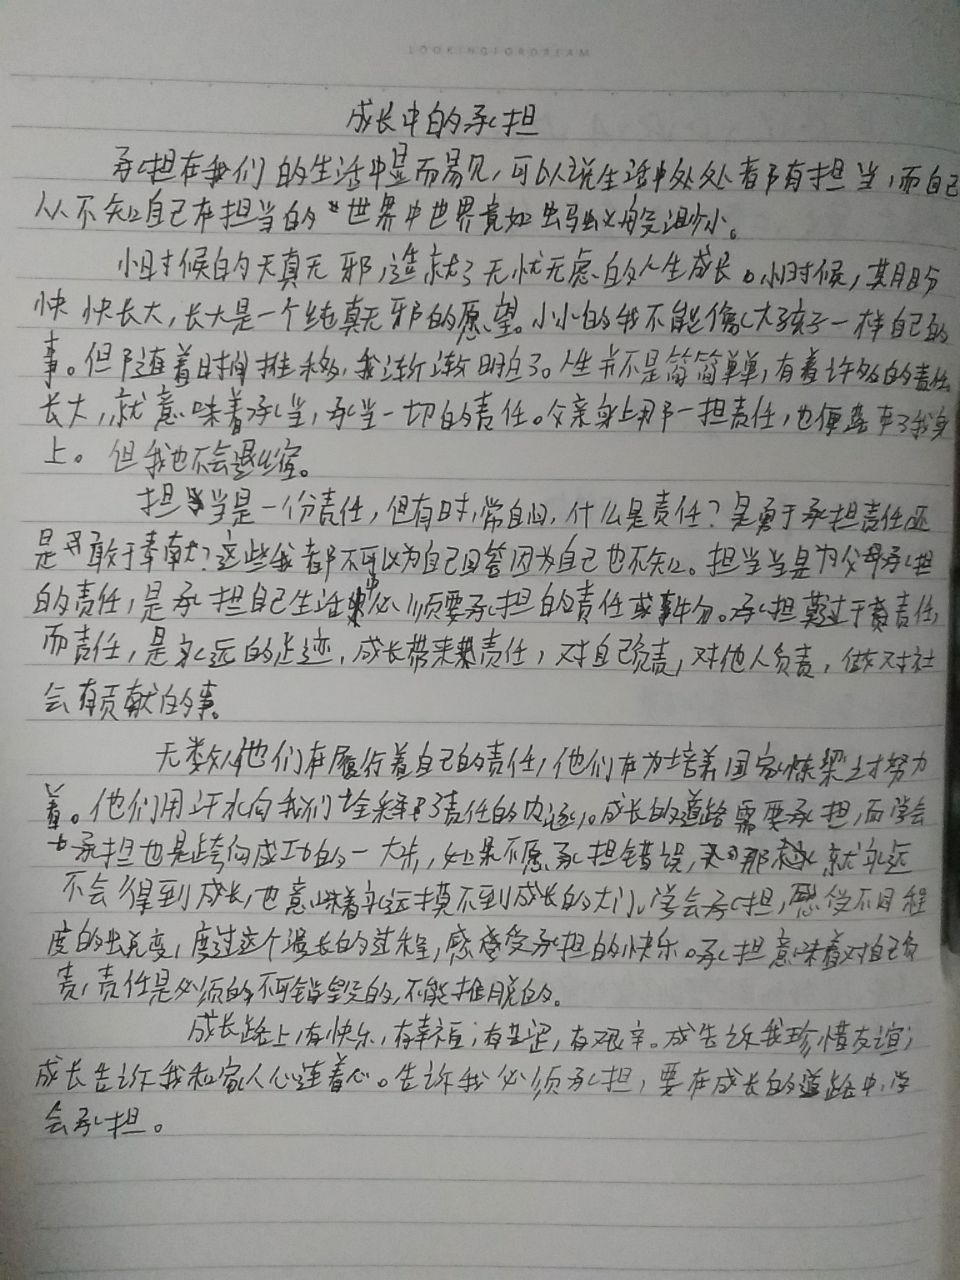 LOOKINGFORDREAM
成长中的承担
承担在我们的生活中显而易见，可以说生活中处处都有担当，而自己
从不知自己在担当的世界中世界竟如蚂蚁般渺小。
小时候的天真无邪，造就了无忧无虑的人生成长。小时候，期盼
快快长大，长大是一个纯真无邪的愿望。小小的我不能像大孩子一样自己的
事。但随着时间推移，我渐渐明白了。人生并不是简简单单，有着许多的责任
长大，就意味着承当，承当一切的责任。父亲身上那一担责任，也便落在了我身
上。但我也不会退缩。
担当是一份责任，但有时，常自问，什么是责任？是勇于承担责任还
是敢于奉献？这些我都不可以为自己回答因为自己也不知。担当当是为父母承担
的责任，是承担自己生活中必须要承担的责任或事物。承担莫过于责任，
而责任，是永远的足迹，成长带来责任，对自己负责，对他人负责，做对社
会有贡献的事。
无数人他们在履行着自己的责任，他们在为培养国家栋梁之才努力
着。他们用汗水向我们诠释了责任的内涵。成长的道路需要承担，而学会
承担也是跨向成功的一大步，如果不愿承担错误，那就永远
不会得到成长，也意味着永远摸不到成长的大门。学会承担，感受不同程
度的蜕变，度过这个漫长的过程，感受承担的快乐。承担意味着对自己负
责，责任是必须的不可销毁的，不能推脱的。
成长路上，有快乐，有幸福；有艰辛。成告诉我珍惜友谊；
成长告诉我和家人心连着心。告诉我必须承担，要在成长的道路中，学
会承担。